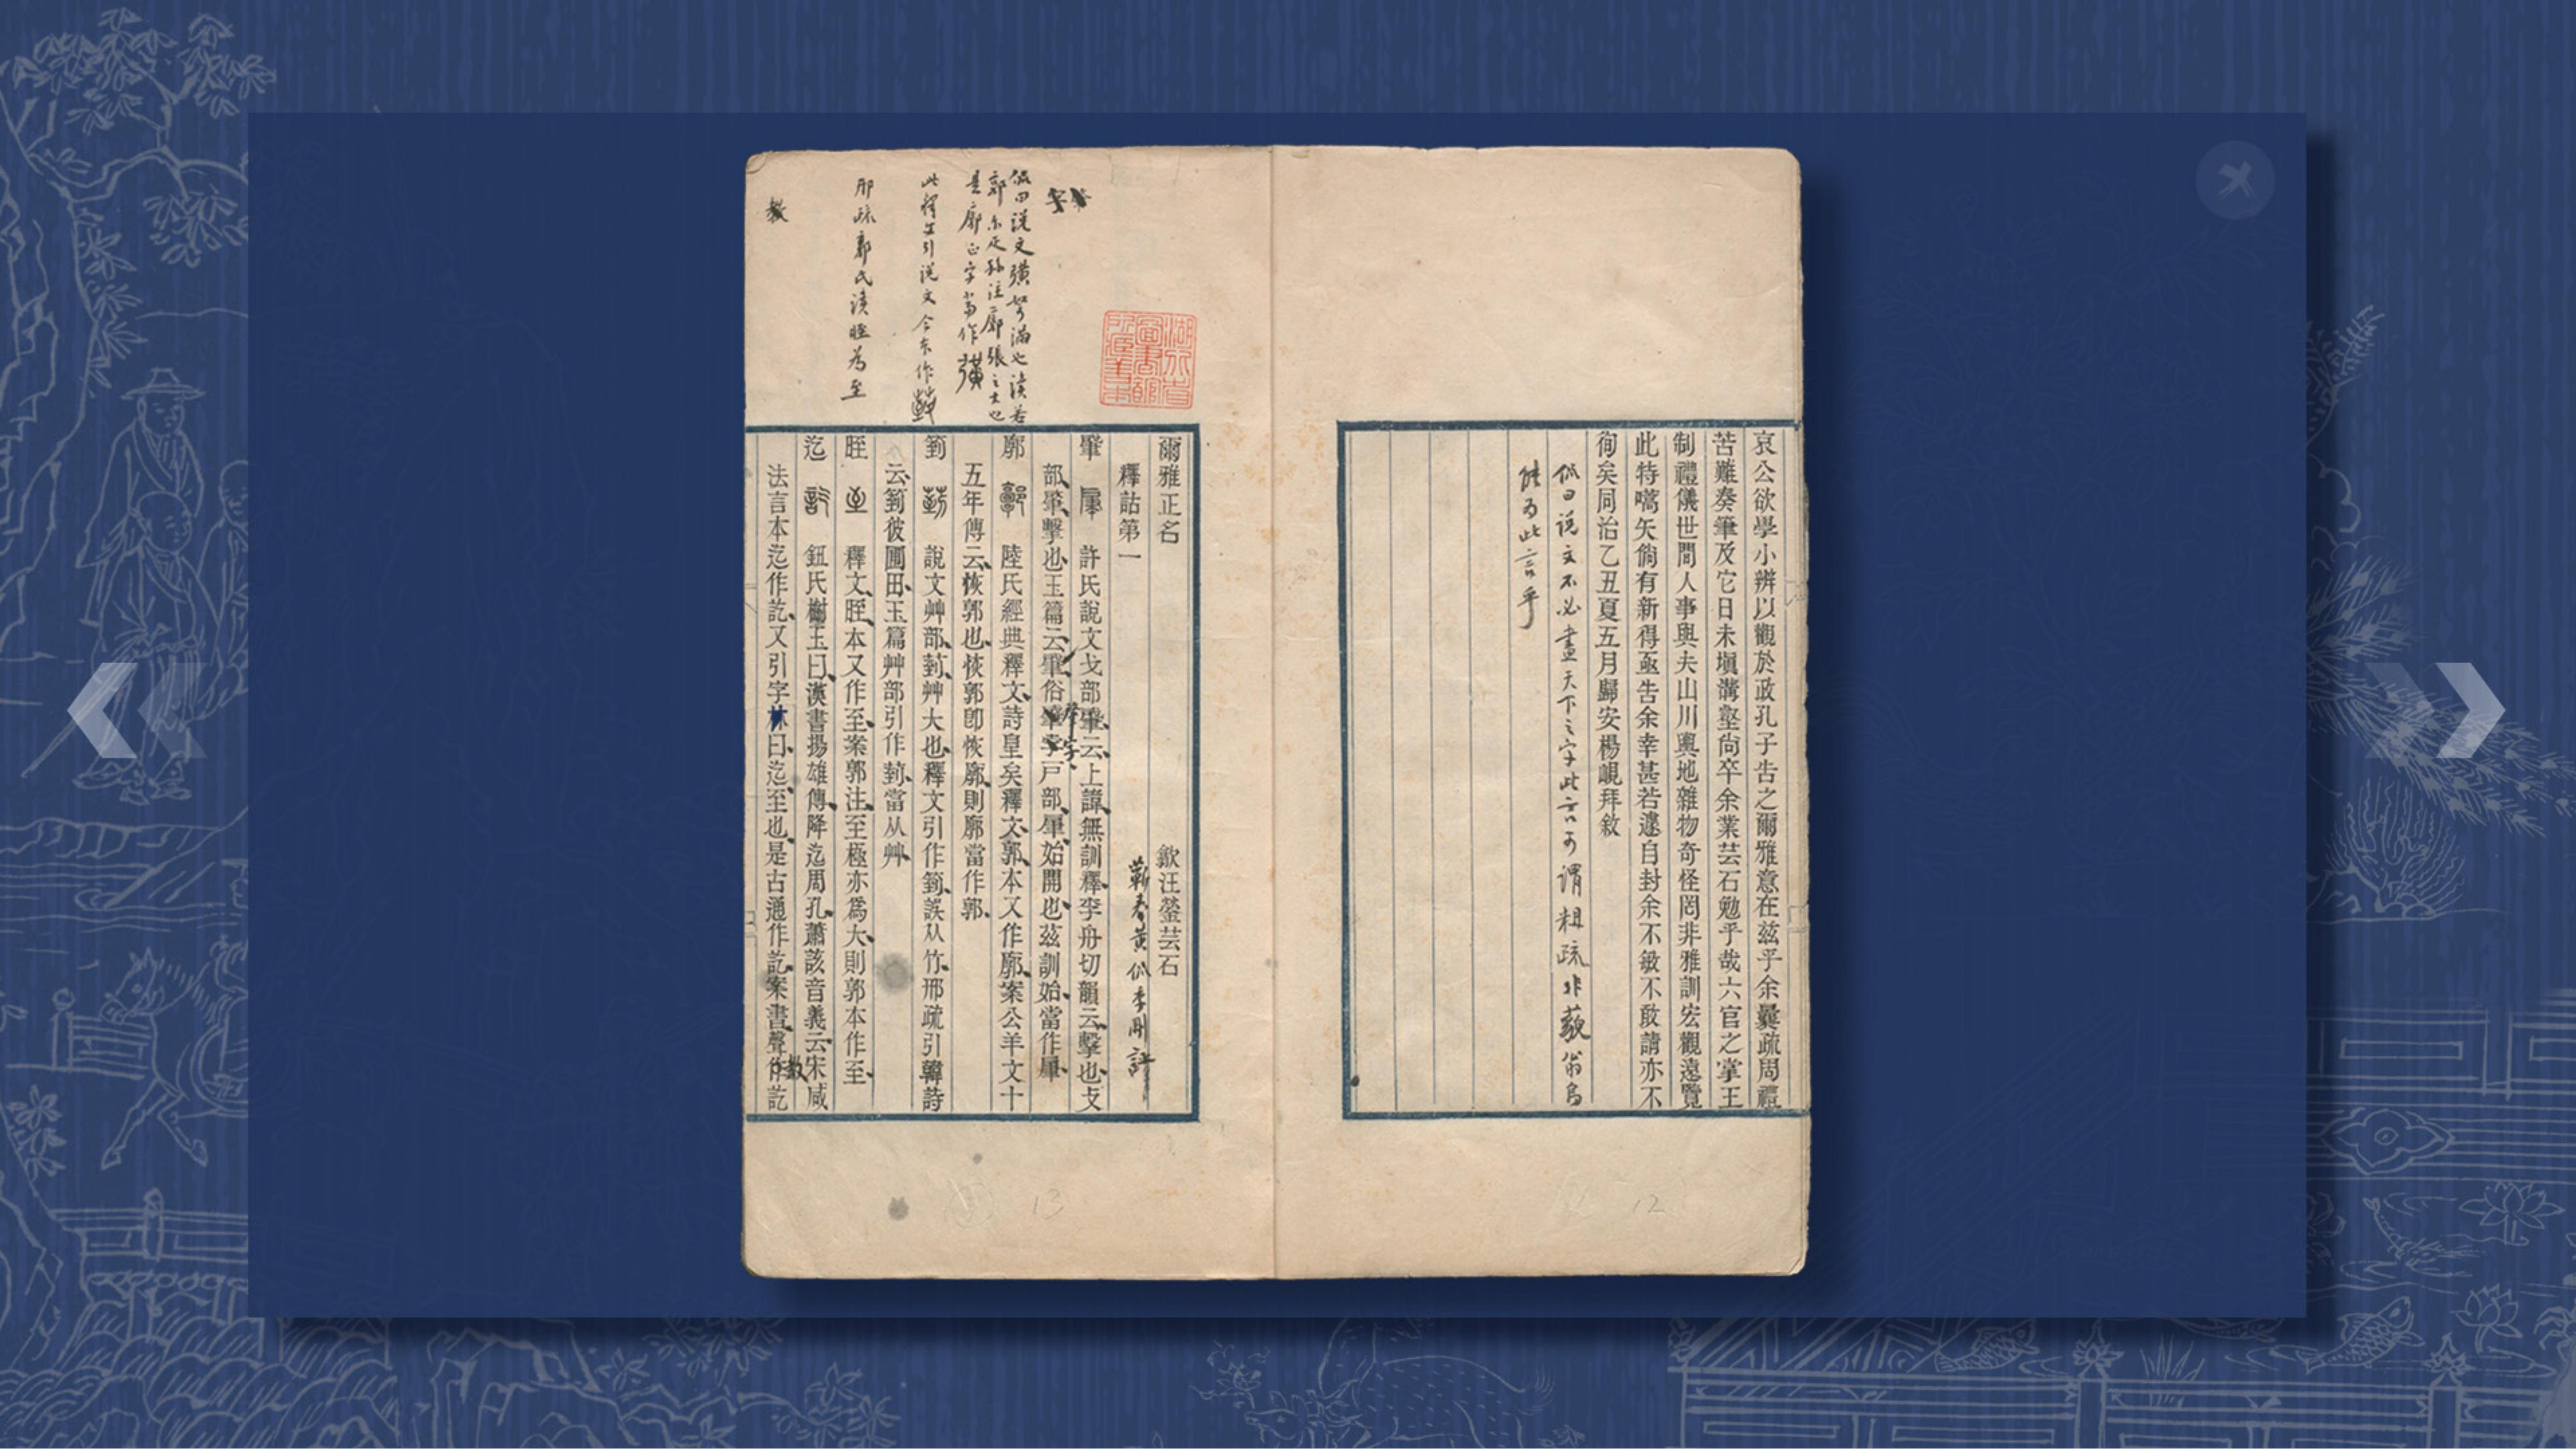 哀公欲學小辨以觀於政孔子告之爾雅意在茲乎余曩疏周禮
苦難奏筆及它日未塡溝壑尙卒余業芸石勉乎哉六官之掌王
制禮儀世間人事與夫山川輿地雜物奇怪罔非雅訓宏觀遠覽
此特嚆矢倘有新得亟告余幸甚若遽自封余不敏不敢請亦不
徇矣同治乙丑夏五月歸安楊峴拜敘
侃曰说文不必盡天下之字此言可谓粗疏非藐翁烏
能为此言乎
湖北省
圖書館
所藏善本
爾雅正名
歙汪鎣芸石
釋詁第一
蘄春黃侃季剛評
肈
許氏說文戈部肈云上諱無訓釋李舟切韻云擊也攴
部肇擊也玉篇云肇俗肈字戶部肁始開也茲訓始當作肁
廓
陸氏經典釋文詩皇矣釋文郭本又作廓案公羊文十
五年傳云恢郭也恢郭卽恢廓則廓當作郭
箌
說文艸部菿艸大也釋文引作箌誤从竹邢疏引韓詩
云箌彼圃田玉篇艸部引作菿當从艸
晊
釋文晊本又作至案郭注至極亦爲大則郭本作至
迄
鈕氏樹玉曰漢書揚雄傳降迄周孔蕭該音義云宋咸
法言本迄作訖又引字林曰迄至也是古通作訖案書聲教作訖
侃曰说文彉弩满也读若
郭尔疋孙注廓張之大也
是廓正字当作彉
此释文引说文今本作菿
邢疏郭氏读晊为至
教
12
13